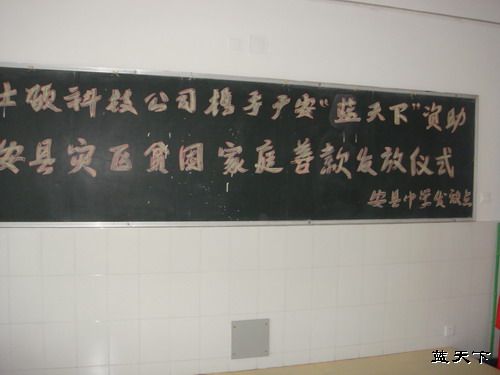 士硕科技公司携手广安“蓝天下”资助
安县灾区贫困家庭善款发放仪式
安县中学发放点
蓝天下